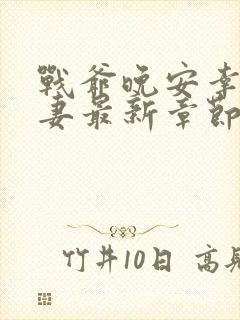 戰爺晚安李
妻最新章節
竹井10日 高見